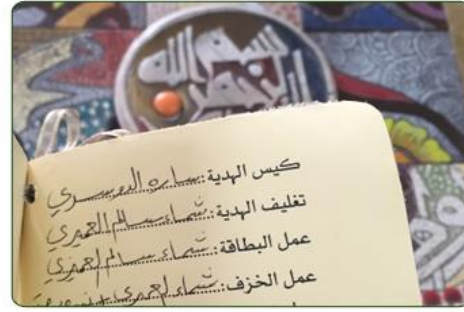 بسم الله
الرحمن
كيس الهدية: ساره الدوسري
تغليف الهدية: شماء سالم العميري
عمل البطاقة: شماء سالم العميري
عمل الخزف: شماء العميري